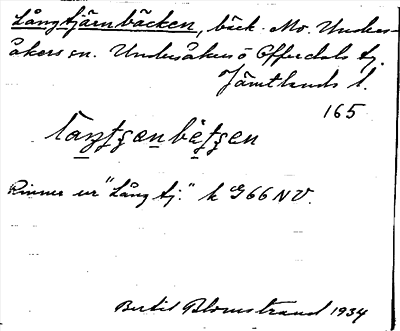 Långtjärnbäcken, bäck. Mo. Unders-
åkers sn. Undersåkers o Offerdals tg.
Jämtlands l.
165
Rinner ur "Lång tj." k G66 NV.
Bertil Blomstrand 1934